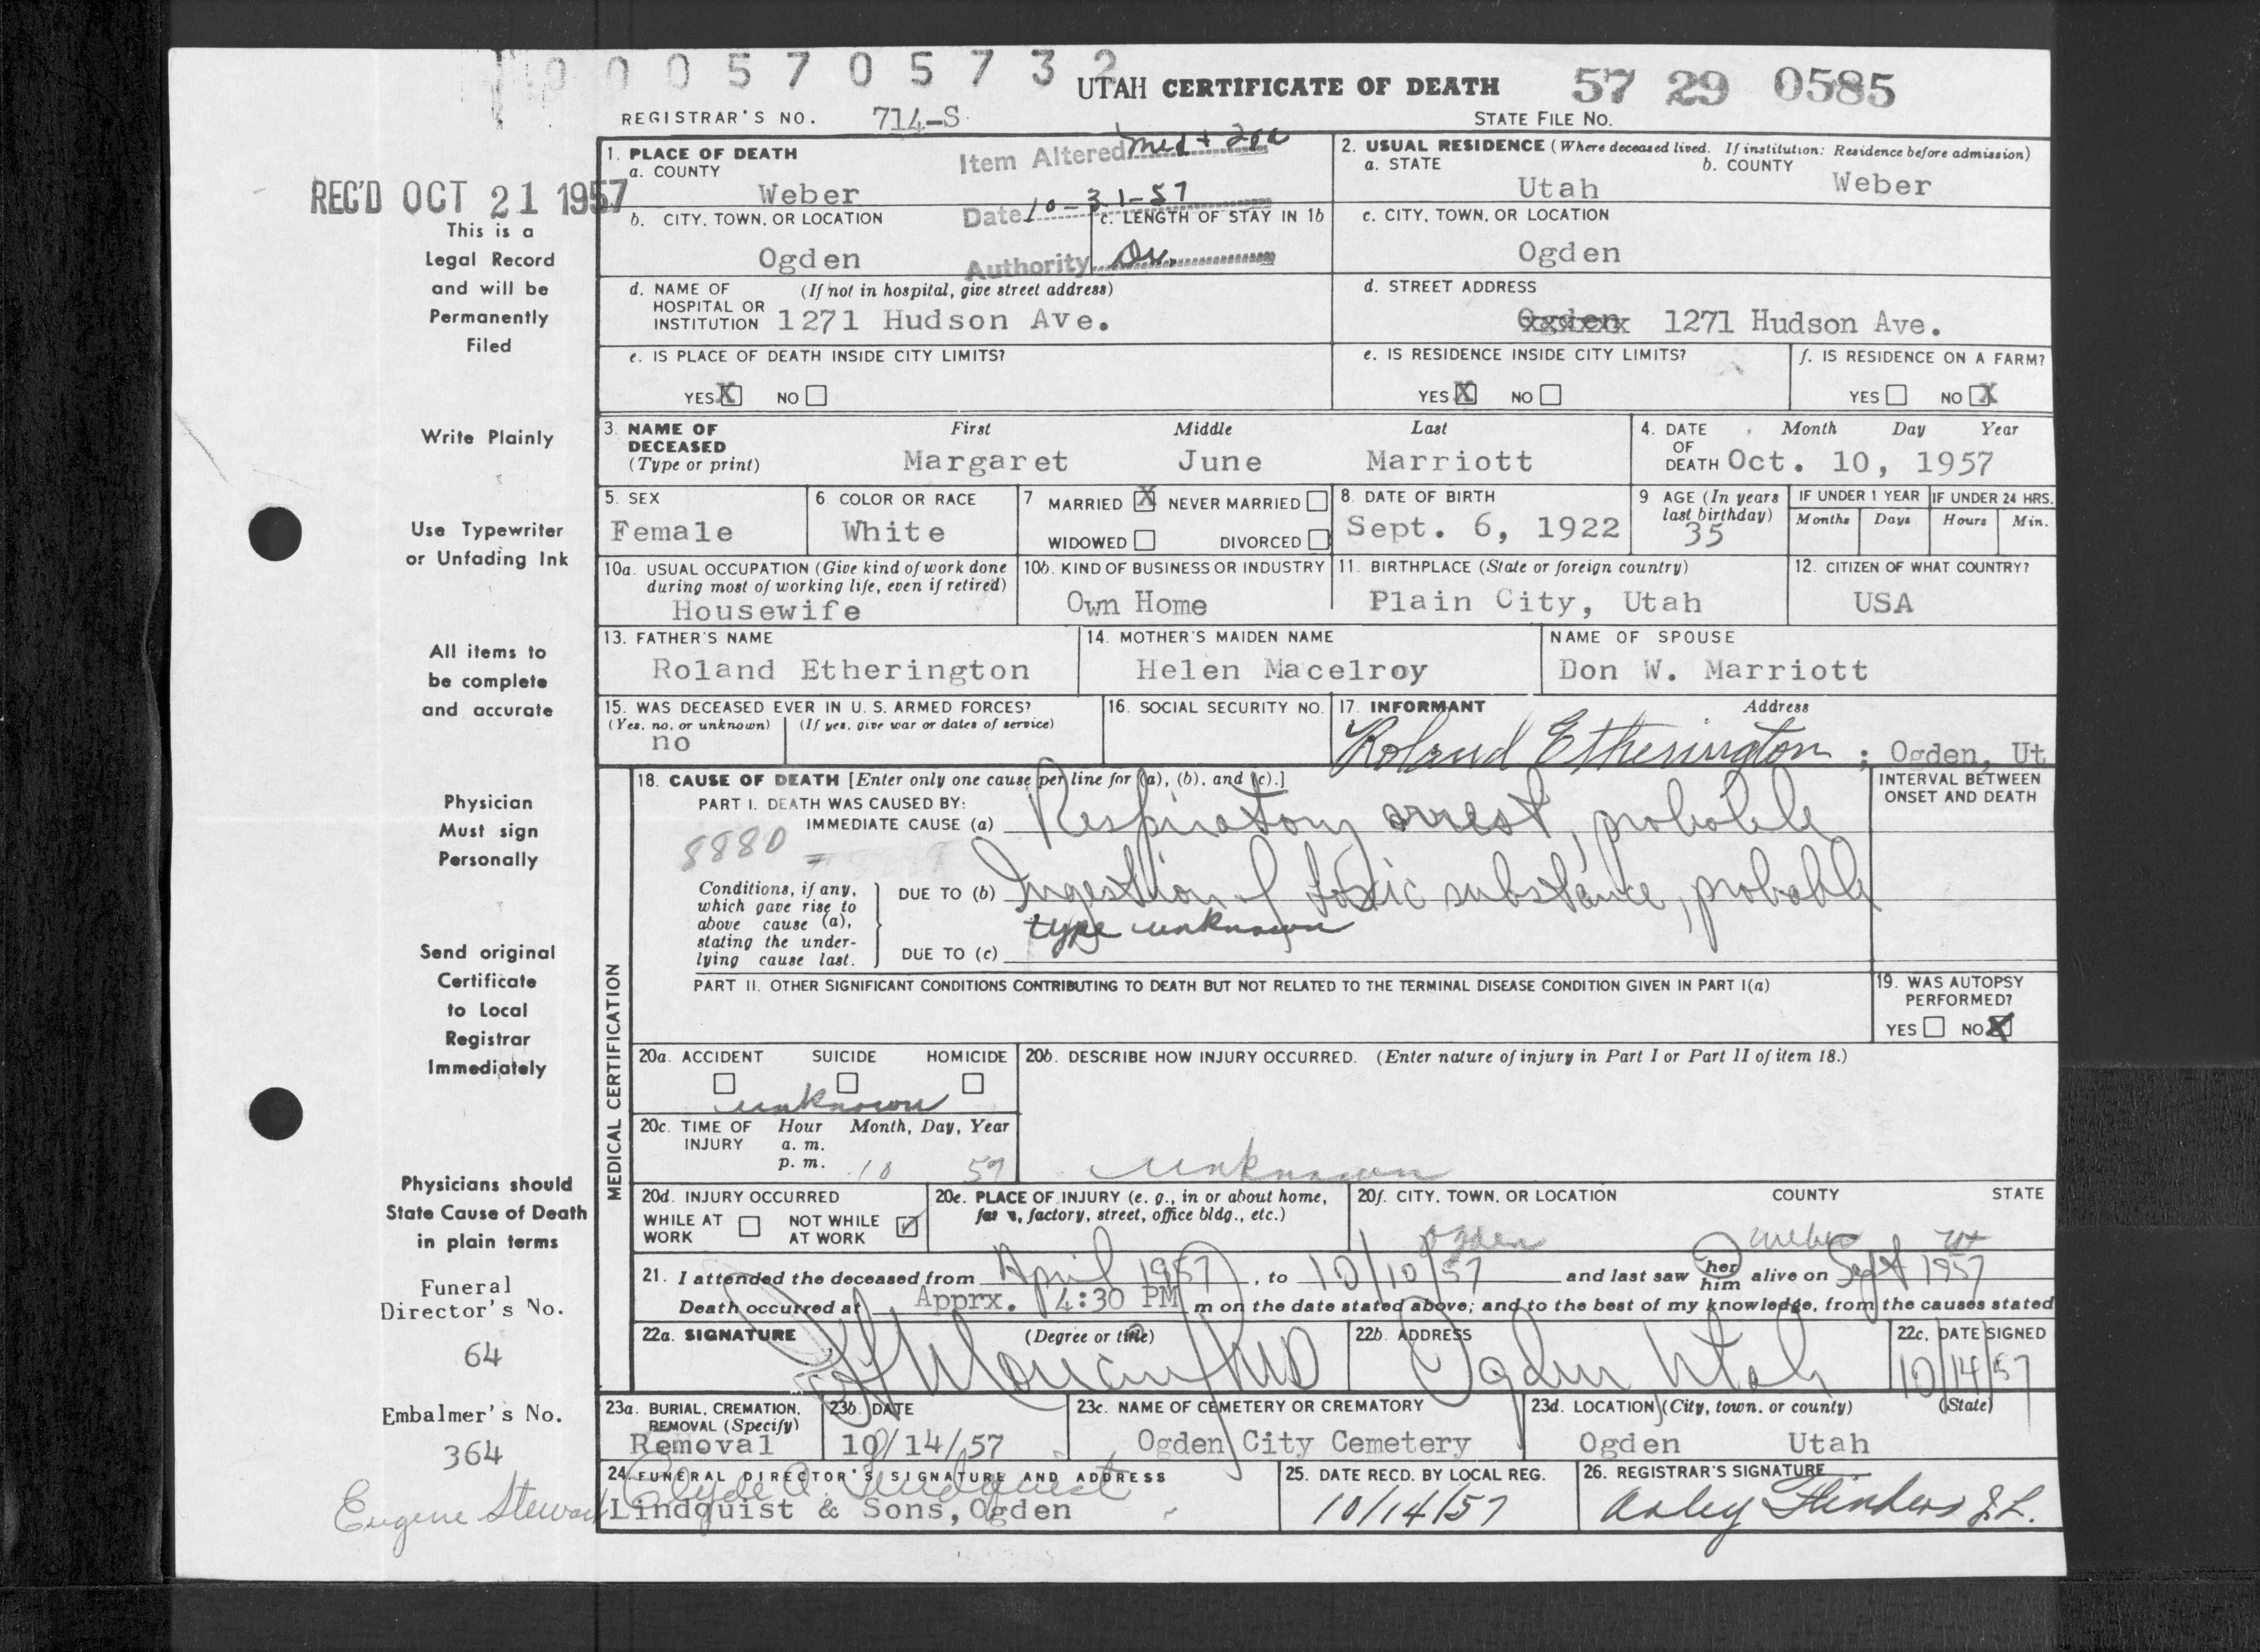 0005705732
UTAH CERTIFICATE OF DEATH
57 29 0585
REGISTRAR'S NO. 714-S
STATE FILE NO.
REC'D OCT 21 1957
This is a
Legal Record
and will be
Permanently
Filed
Write Plainly
Use Typewriter
or Unfading Ink
All items to
be complete
and accurate
Physician
Must sign
Personally
Send original
Certificate
to Local
Registrar
Immediately
Physicians should
State Cause of Death
in plain terms
Funeral
Director's No.
64
Embalmer's No.
364
Eugene Stewart
1. PLACE OF DEATH
a. COUNTY
Weber
Item Altered med + 20a
Date 10-31-57
Authority Dr.
b. CITY, TOWN, OR LOCATION
Ogden
c. LENGTH OF STAY IN 1b
d. NAME OF HOSPITAL OR INSTITUTION (If not in hospital, give street address)
1271 Hudson Ave.
e. IS PLACE OF DEATH INSIDE CITY LIMITS?
YES X NO
2. USUAL RESIDENCE (Where deceased lived. If institution: Residence before admission)
a. STATE Utah
b. COUNTY Weber
c. CITY, TOWN, OR LOCATION
Ogden
d. STREET ADDRESS
Ogden 1271 Hudson Ave.
e. IS RESIDENCE INSIDE CITY LIMITS?
YES X NO
f. IS RESIDENCE ON A FARM?
YES NO X
3. NAME OF DECEASED (Type or print)
First Middle Last
Margaret June Marriott
4. DATE OF DEATH Month Day Year
Oct. 10, 1957
5. SEX
Female
6. COLOR OR RACE
White
7 MARRIED X NEVER MARRIED
WIDOWED DIVORCED
8. DATE OF BIRTH
Sept. 6, 1922
9 AGE (In years last birthday)
35
IF UNDER 1 YEAR
Months Days
IF UNDER 24 HRS.
Hours Min.
10a. USUAL OCCUPATION (Give kind of work done during most of working life, even if retired)
Housewife
10b. KIND OF BUSINESS OR INDUSTRY
Own Home
11. BIRTHPLACE (State or foreign country)
Plain City, Utah
12. CITIZEN OF WHAT COUNTRY?
USA
13. FATHER'S NAME
Roland Etherington
14. MOTHER'S MAIDEN NAME
Helen Macelroy
NAME OF SPOUSE
Don W. Marriott
15. WAS DECEASED EVER IN U. S. ARMED FORCES?
(Yes, no, or unknown) (If yes, give war or dates of service)
no
16. SOCIAL SECURITY NO.
17. INFORMANT Address
Roland Etherington ; Ogden, Ut
MEDICAL CERTIFICATION
18. CAUSE OF DEATH [Enter only one cause per line for (a), (b), and (c).]
PART I. DEATH WAS CAUSED BY:
IMMEDIATE CAUSE (a) Respiratory arrest, probable
8880
Conditions, if any, which gave rise to above cause (a), stating the underlying cause last.
DUE TO (b) Ingestion of toxic substance, probable
type unknown
DUE TO (c)
INTERVAL BETWEEN ONSET AND DEATH
PART II. OTHER SIGNIFICANT CONDITIONS CONTRIBUTING TO DEATH BUT NOT RELATED TO THE TERMINAL DISEASE CONDITION GIVEN IN PART I(a)
19. WAS AUTOPSY PERFORMED?
YES NO X
20a. ACCIDENT SUICIDE HOMICIDE
unknown
20b. DESCRIBE HOW INJURY OCCURRED. (Enter nature of injury in Part I or Part II of item 18.)
unknown
20c. TIME OF INJURY Hour Month, Day, Year
a. m.
p. m. 10 57
20d. INJURY OCCURRED
WHILE AT WORK NOT WHILE AT WORK ✓
20e. PLACE OF INJURY (e. g., in or about home, farm, factory, street, office bldg., etc.)
20f. CITY, TOWN, OR LOCATION COUNTY STATE
Ogden Weber Ut
21. I attended the deceased from April 1957, to 10/10/57 and last saw her him alive on Sept 1957
Death occurred at Apprx. 4:30 PM m on the date stated above; and to the best of my knowledge, from the causes stated
22a. SIGNATURE (Degree or title)
MD
22b. ADDRESS
Ogden Utah
22c. DATE SIGNED
10/14/57
23a. BURIAL, CREMATION, REMOVAL (Specify)
Removal
23b. DATE
10/14/57
23c. NAME OF CEMETERY OR CREMATORY
Ogden City Cemetery
23d. LOCATION (City, town, or county) (State)
Ogden Utah
24. FUNERAL DIRECTOR'S SIGNATURE AND ADDRESS
Clyde A. Lindquist
Lindquist & Sons, Ogden
25. DATE RECD. BY LOCAL REG.
10/14/57
26. REGISTRAR'S SIGNATURE
Flinders